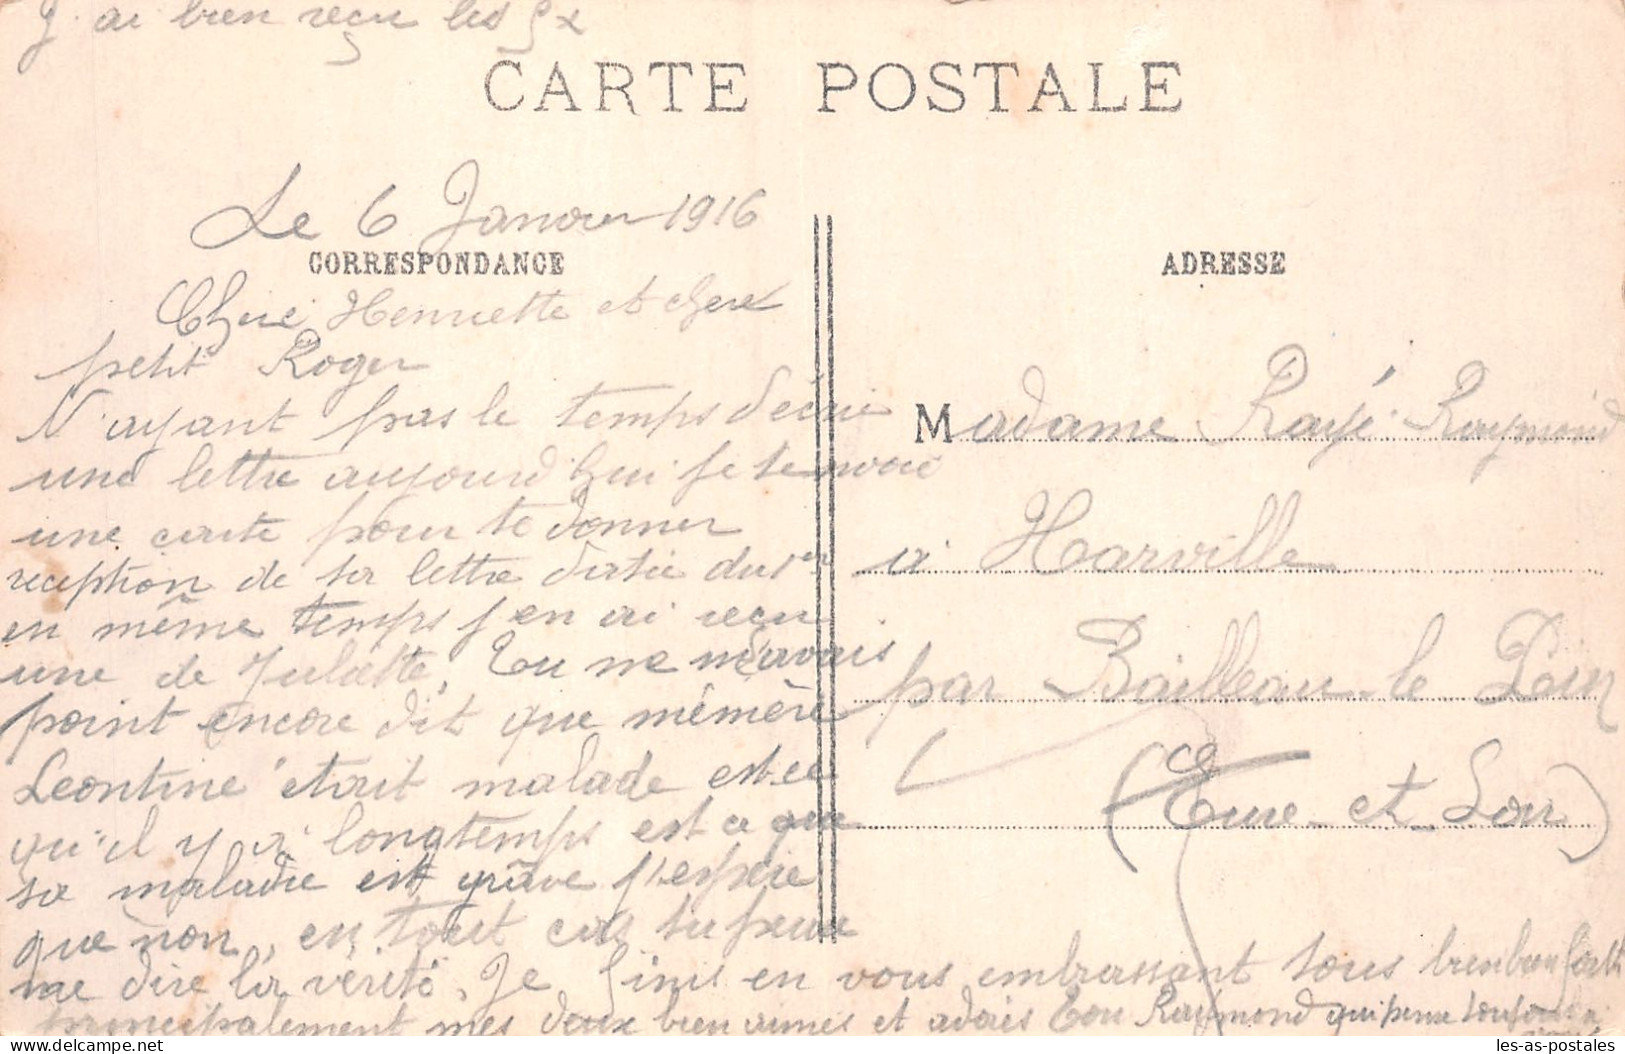 J'ai bien reçu les
CARTE POSTALE
Le 6 Janvier 1916
CORRESPONDANCE
Chere Henriette et cher
petit Roger
N'ayant pas le temps d'écrire
une lettre aujourd'hui je te
une carte pour te donner
reception de ta lettre datée du 1er
en même temps j'en ai reçu
une de Juliette. Tu ne m'avais
point encore dit que mémère
Leontine était malade est-ce
qu'il y a longtemps est ce que
sa maladie est grâve j'espère
que nòn, en tout cas tu peux
me dire la vérité. Je finis en vous embrassant tous bien bien fort
principalement mes deux bien aimés et adorés Ton Raymond qui pense toujours a
vous
ADRESSE
Madame Rayé Raymond
à Harville
par Bailleau-le Pin
(Eure-et-Loir)
les-as-postales